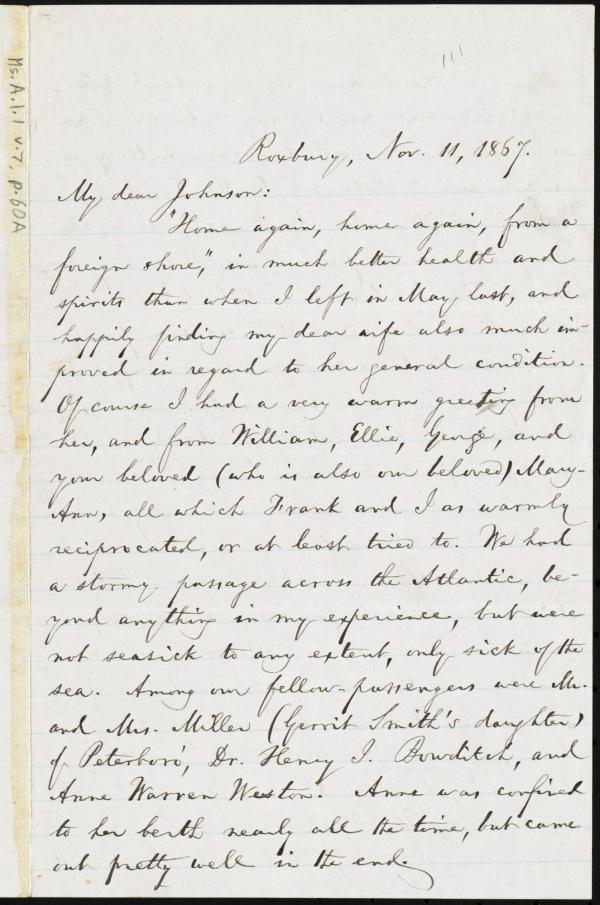 111
Ms. A.1.1 v.7, p.60A
Roxbury, Nov. 11, 1867.
My dear Johnson:
"Home again, home again, from a
foreign shore," in much better health and
spirits than when I left in May last, and
happily finding my dear wife also much im-
proved in regard to her general condition.
Of course I had a very warm greeting from
her, and from William, Ellie, George, and
your beloved (who is also our beloved) Mary-
Ann, all which Frank and I as warmly
reciprocated, or at least tried to. We had
a stormy passage across the Atlantic, be-
yond anything in my experience, but were
not seasick to any extent, only sick of the
sea. Among our fellow-passengers were Mr.
and Mrs. Miller (Gerrit Smith's daughter)
of Peterboro', Dr. Henry I. Bowditch, and
Anne Warren Weston. Anne was confined
to her berth nearly all the time, but came
out pretty well in the end.